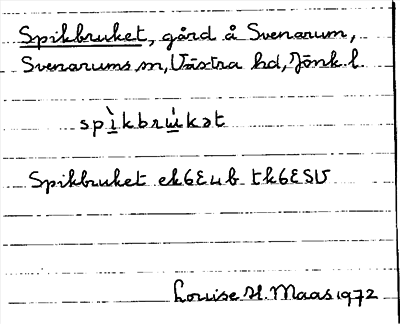 Spikbruket, gård å Svenarum,
Svenarums sn, Västra hd, Jönk. l.
spìkbrùkət
Spikbruket ek6E4b tk6ESV
Louise H. Maas 1972